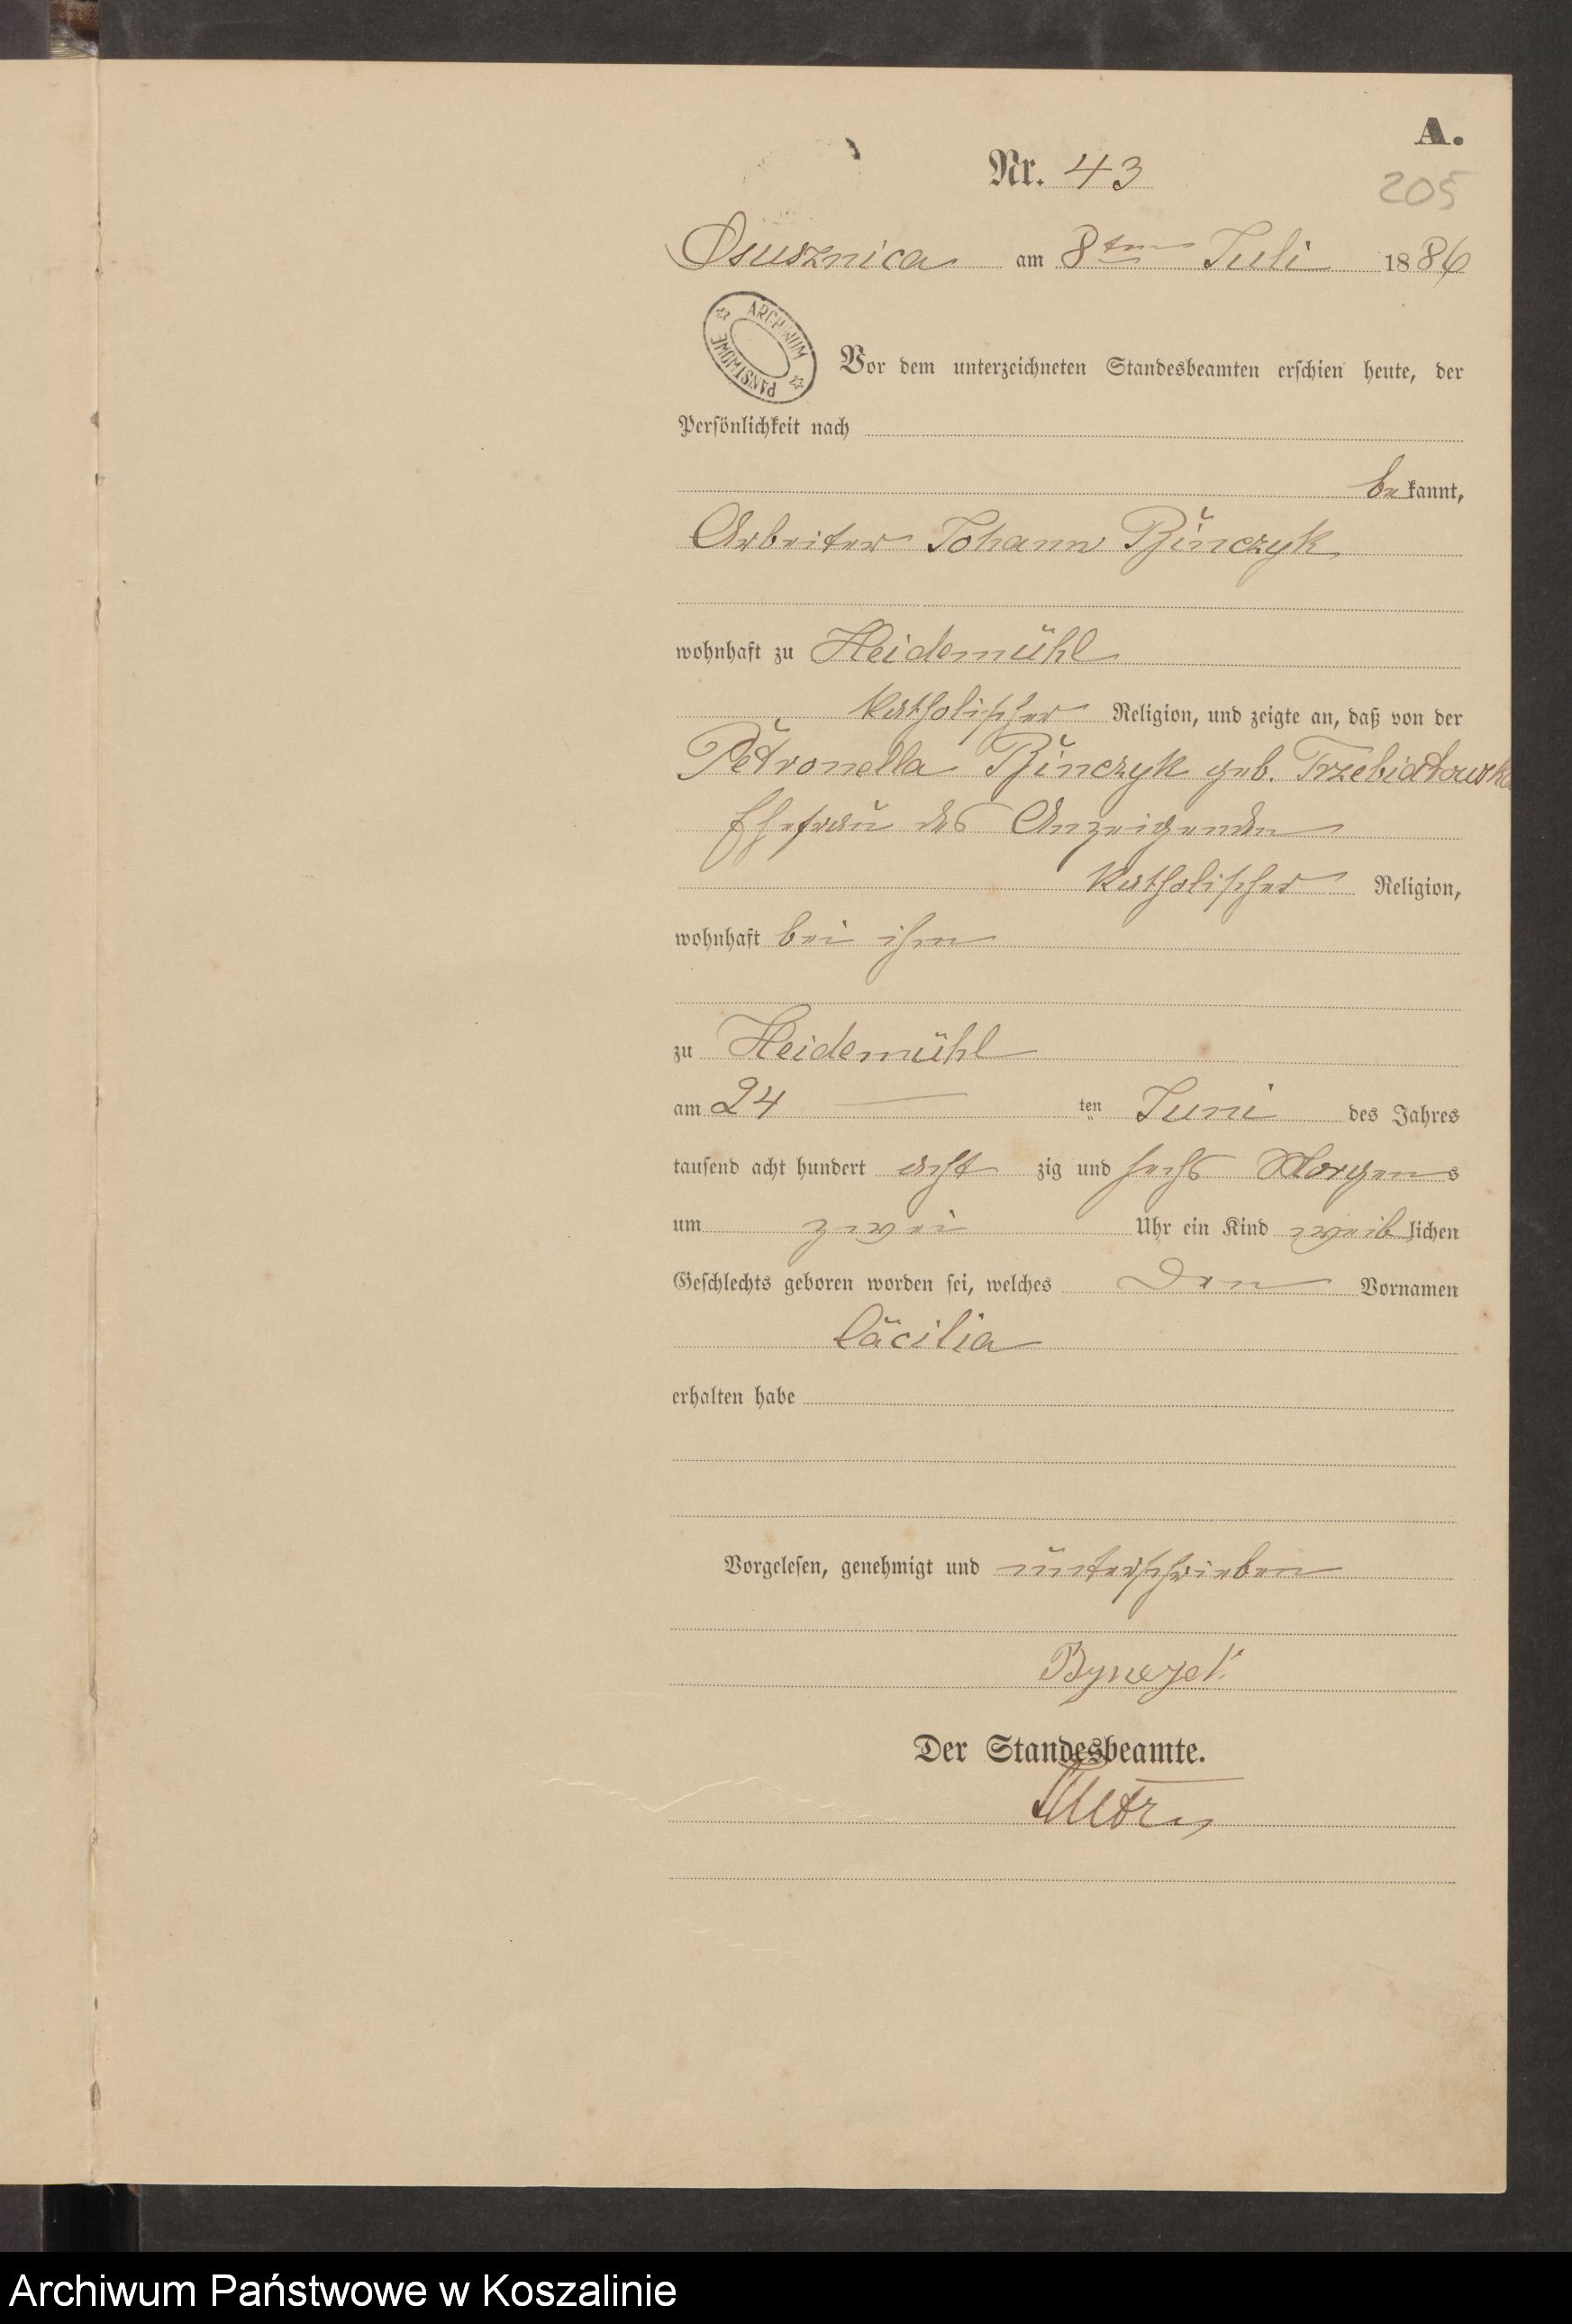 A.
Nr. 43
205
Osusznica am 8ten Juli 1886
ARCHIWUM PAŃSTWOWE
Vor dem unterzeichneten Standesbeamten erschien heute, der
Persönlichkeit nach
bekannt,
Arbeiter Johann
wohnhaft zu Heidemühl
katholischer Religion, und zeigte an, daß von der
Petronella geb. Trzebiatowska
Ehefrau des Anzeigenden
katholischer Religion,
wohnhaft bei ihm
zu Heidemühl
am 24 ten Juni des Jahres
tausend acht hundert acht zig und sechs Morgens
um zwei Uhr ein Kind weiblichen
Geschlechts geboren worden sei, welches den Vornamen
Cäcilia
erhalten habe
Vorgelesen, genehmigt und unterschrieben
Der Standesbeamte.
Archiwum Państwowe w Koszalinie